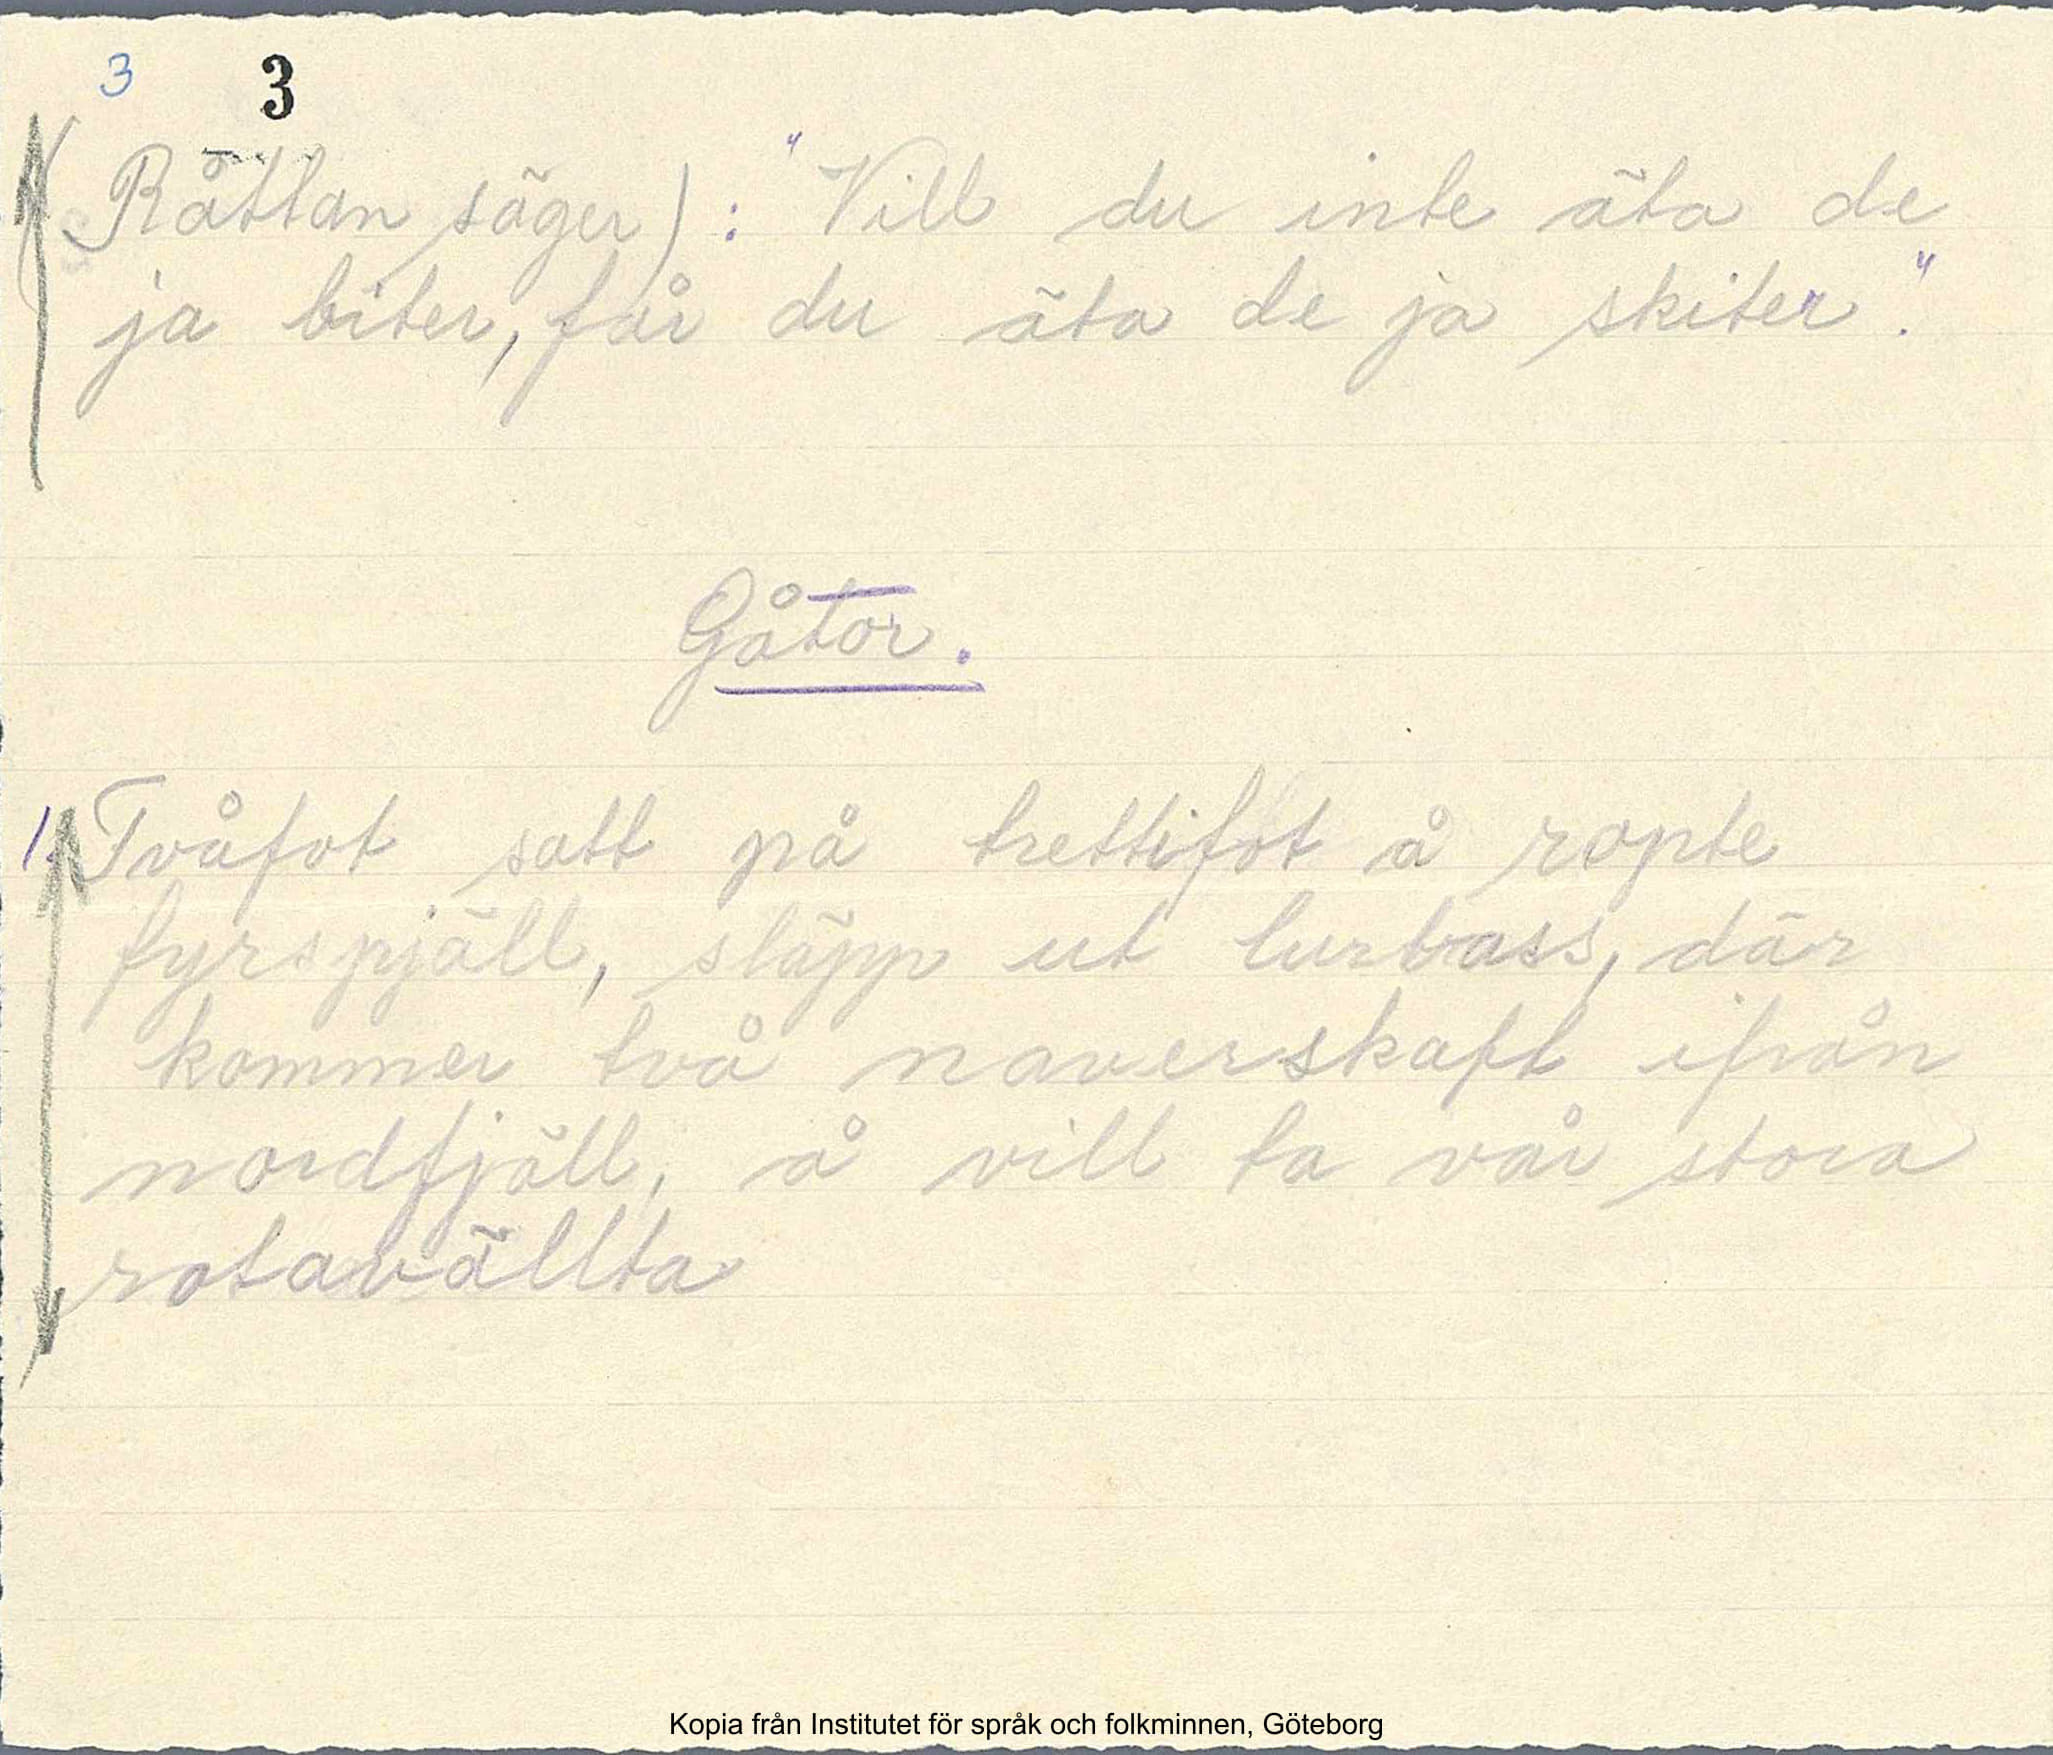 3 3
(Råttan säger): "Vill du inte äta de
ja biter, får du äta de ja skiter."
Gåtor.
1. Tvåfot satt på trettifot å ropte
fyrspjäll, släpp ut lurbass, där
kommer två naverskaft ifrån
nordfjäll, å vill ta vår stora
rotavällta
Kopia från Institutet för språk och folkminnen, Göteborg